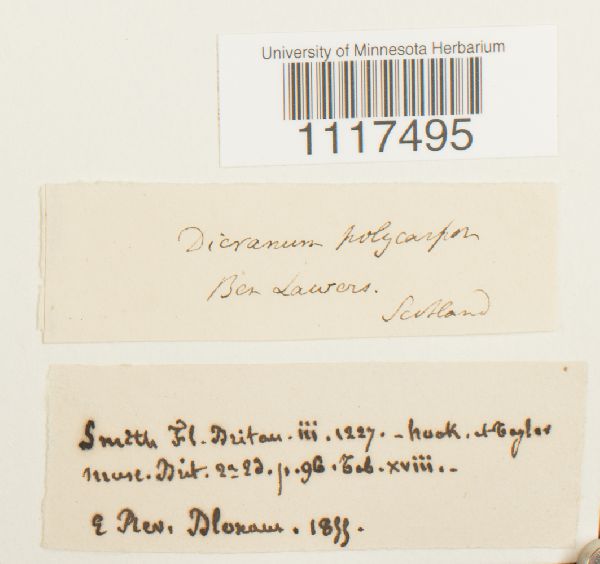 University of Minnesota Herbarium
1117495
Dicranum polycarpon
Ben Lawers.
Scotland
Smith Fl. Britan. iii. 1227. - hook. et Taylor
musc. Brit. 2a Ed. p. 96. Tab. xviii. -
E Rev. Bloxam. 1855.